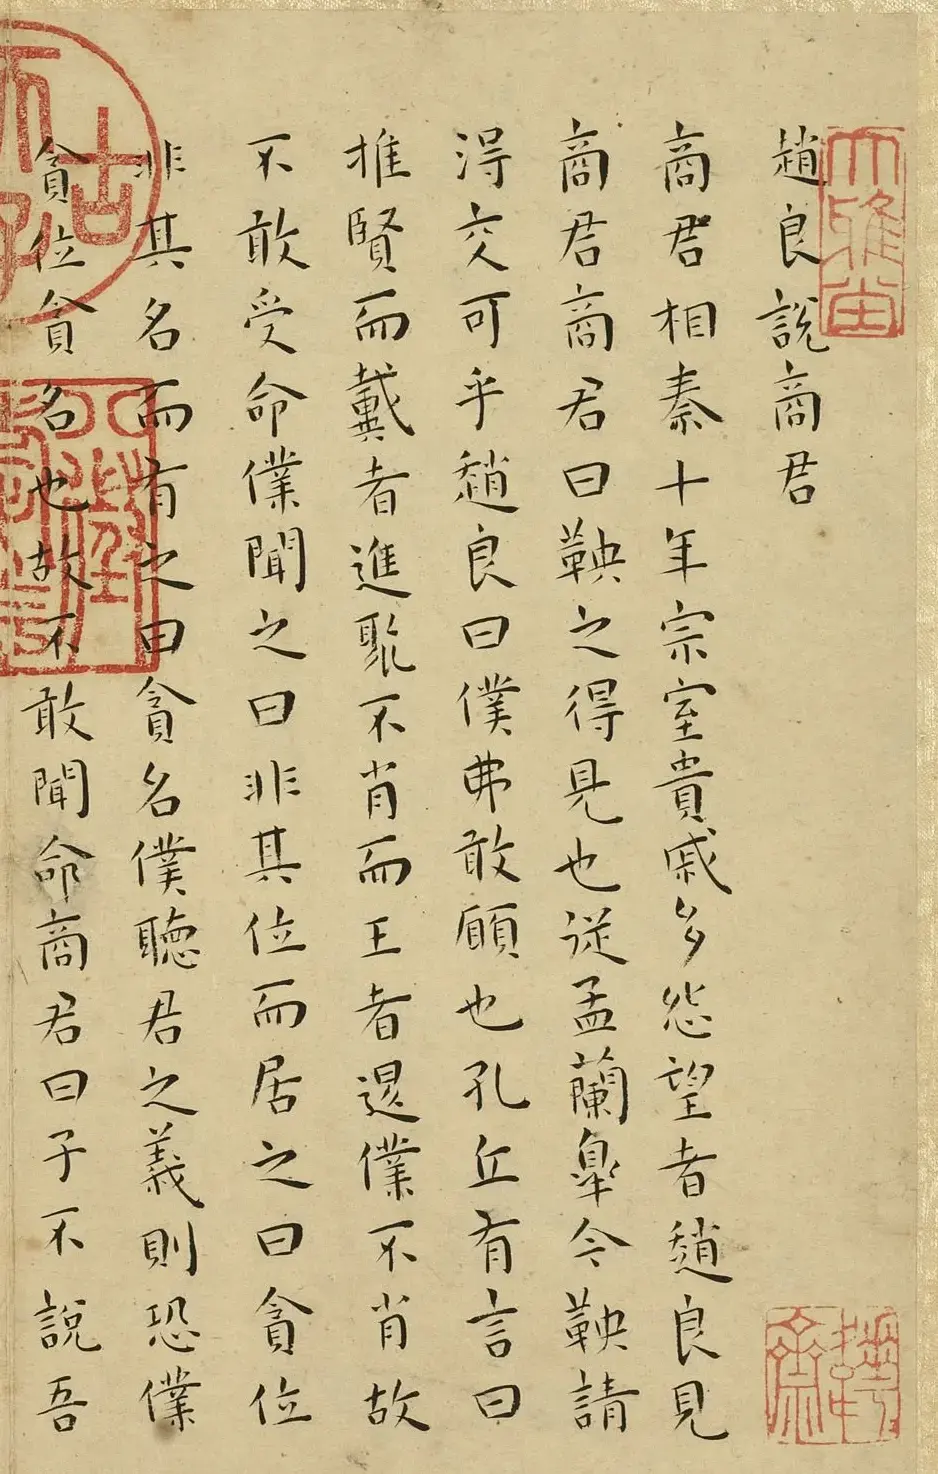 趙良說商君
商君相秦十年宗室貴戚多怨望者趙良見
商君商君曰鞅之得見也從孟蘭皋今鞅請
得交可乎趙良曰僕弗敢願也孔丘有言曰
推賢而戴者進聚不肖而王者退僕不肖故
不敢受命僕聞之曰非其位而居之曰貪位
非其名而有之曰貪名僕聽君之義則恐僕
貪位貪名也故不敢聞命商君曰子不說吾
大雅堂